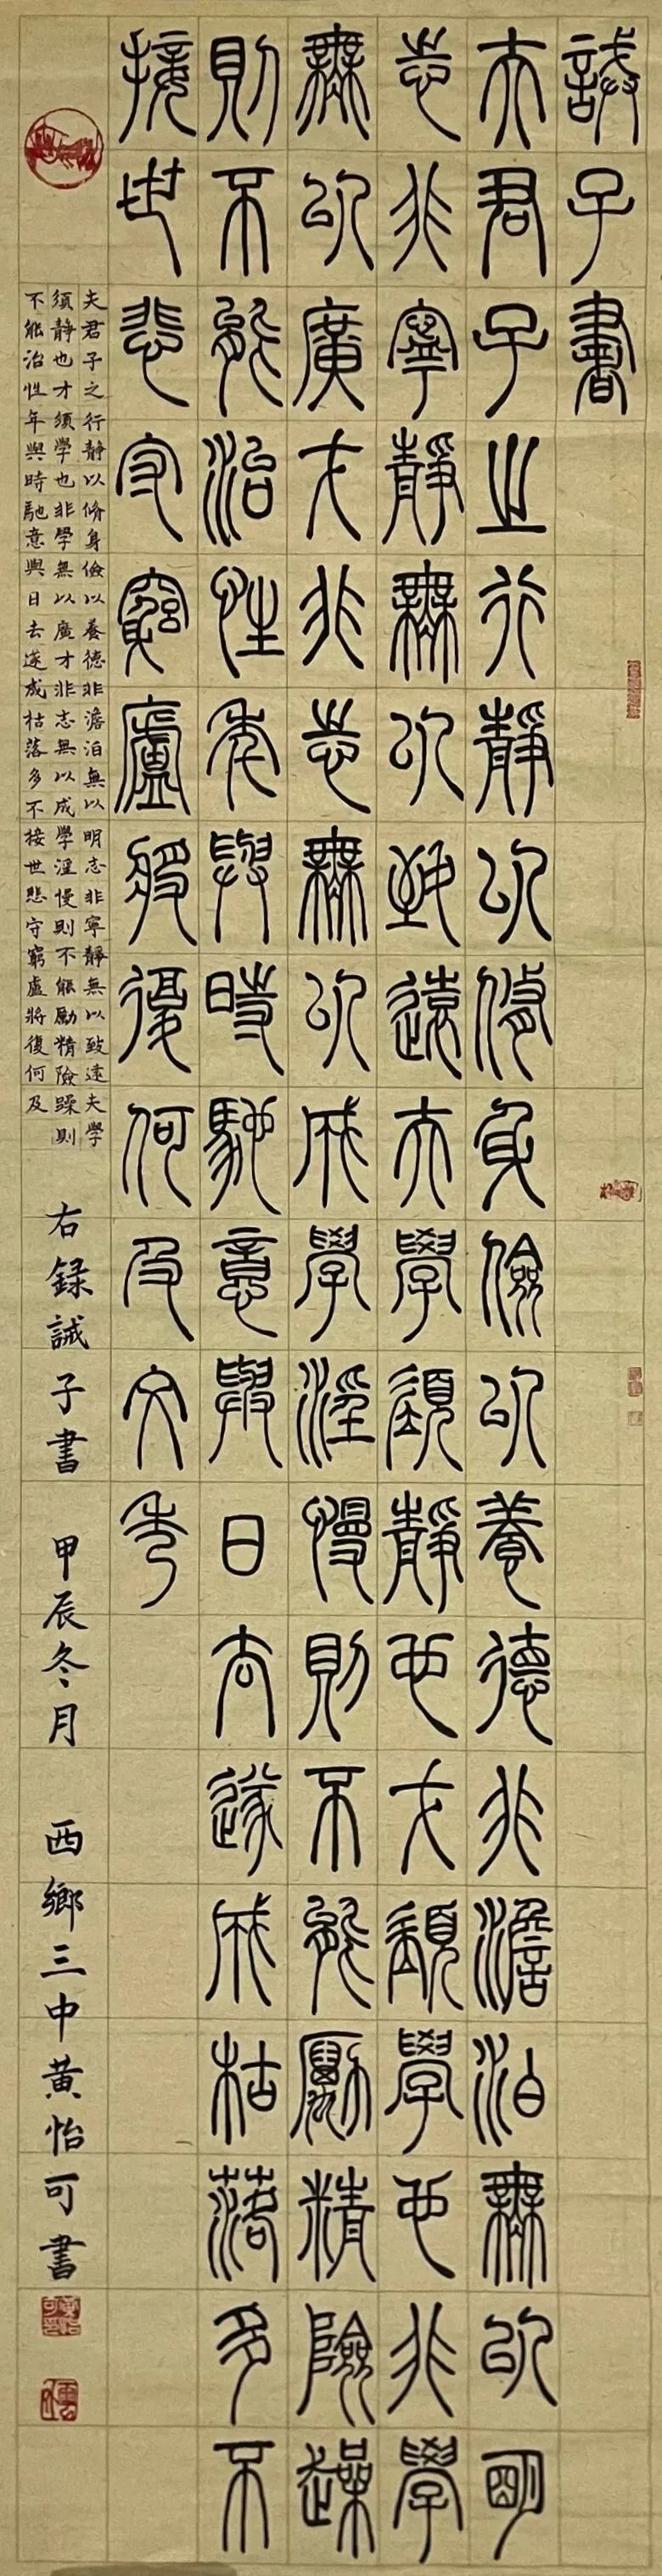 誡子書
夫君子之行靜以修身儉以養德非澹泊無以明
志非寧靜無以致遠夫學須靜也才須學也非學
無以廣才非志無以成學淫慢則不能勵精險躁
則不能治性年與時馳意與日去遂成枯落多不
接世悲守窮廬將復何及文秀
夫君子之行静以脩身儉以養德非澹泊無以明志非寧靜無以致遠夫學
須静也才須學也非學無以廣才非志無以成學淫慢則不能勵精險躁則
不能治性年與時馳意與日去遂成枯落多不接世悲守窮盧將復何及
右録誡子書 甲辰冬月 西鄉三中黄怡可書